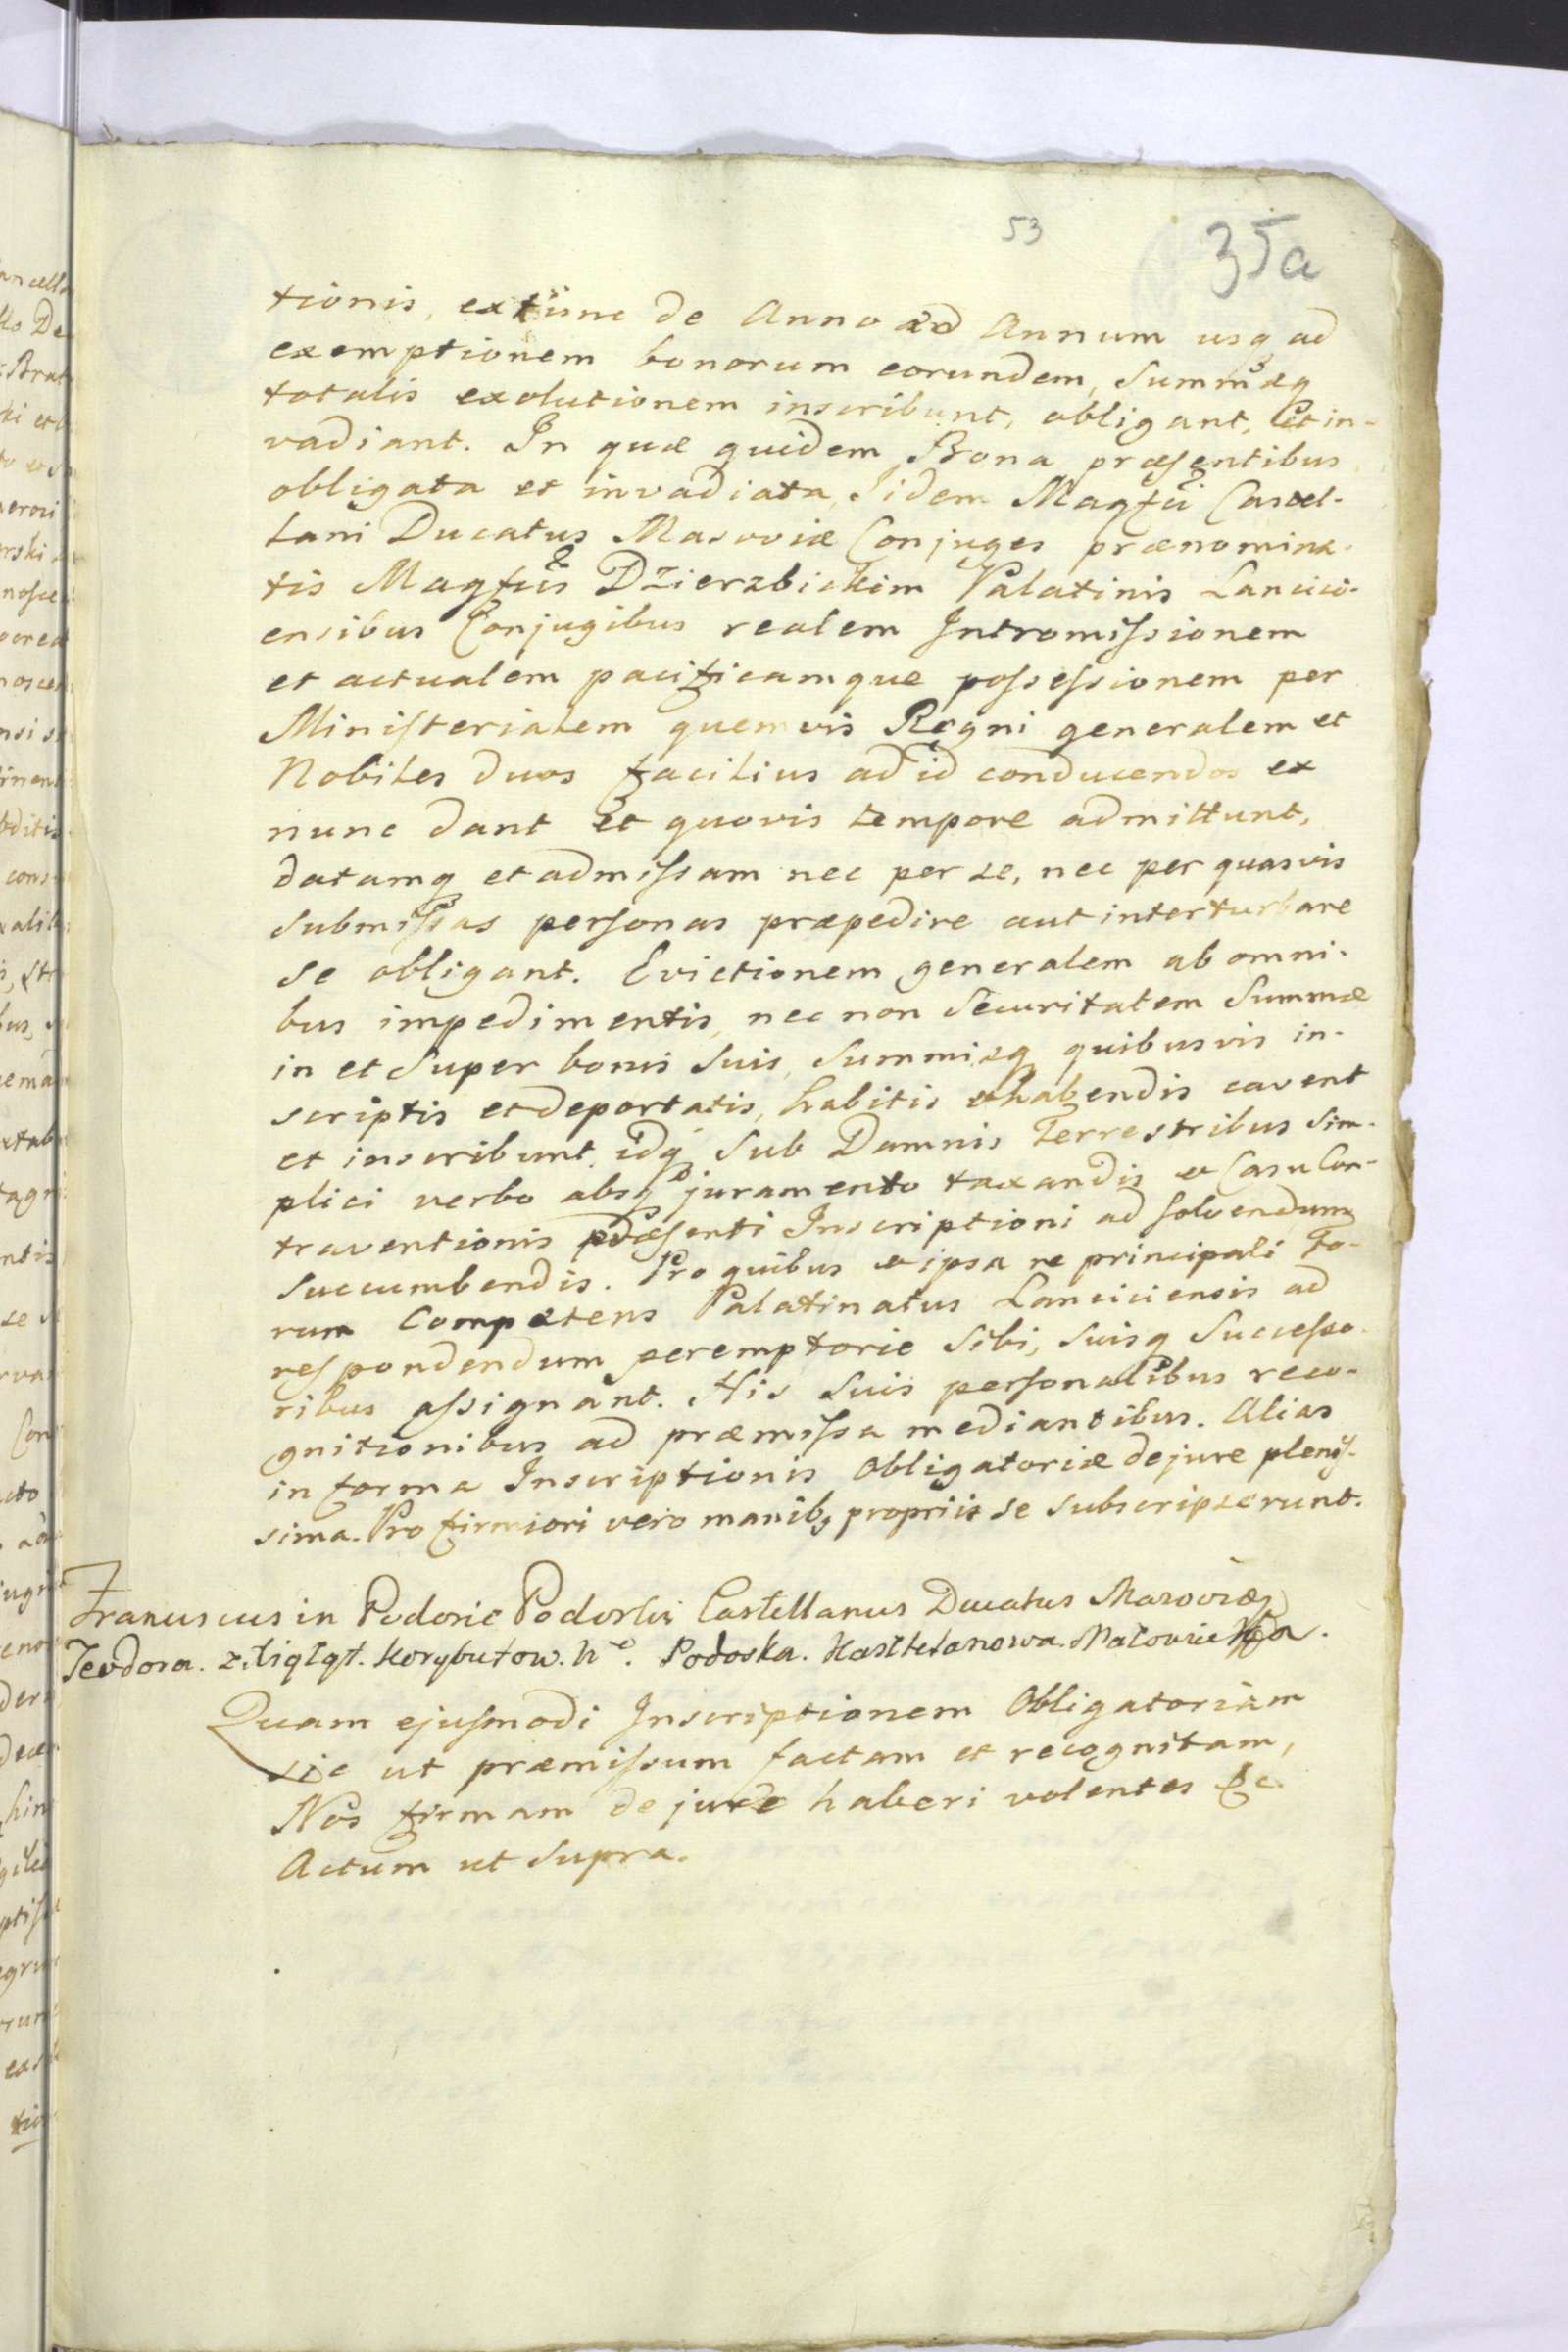 53
35a
tionis, extunc de Anno ad Annum usq ad
exemptionem bonorum eorundem, Summæq
totalis exolutionem inscribunt, obligant, et in-
vadiant. In quæ quidem Bona præsentibus
obligata et invadiata, Iidem Magfci Castel-
lani Ducatus Masoviæ Conjuges prænomina-
tis Magfcis Dzierzbickim Palatinis Lancici-
ensibus Conjugibus realem Intromissionem
et actualem pacificamque possessionem per
Ministerialem quemvis Regni generalem et
Nobiles duos facilius ad id conducendos ex
nunc dant et quovis tempore admittunt,
datamq et admissam nec per se, nec per quasvis
submissas personas præpedire aut interturbare
se obligant. Evictionem generalem ab omni-
bus impedimentis, nec non Securitatem Summæ
in et Super bonis Suis, Summisq quibusvis in-
scriptis et deportatis, habitis et habendis cavent
et inscribunt, idq Sub Damnis Terrestribus Sim-
plici verbo absq juramento taxandis et Casu Con-
traventionis præsenti Inscriptioni ad solvendum
Succumbendis. Pro quibus et ipsa re principali Fo-
rum Competens Palatinatus Lanciciensis ad
respondendum peremptorie Sibi, Suisq Successo-
ribus assignant. His Suis personalibus reco-
gnitionibus ad præmissa mediantibus. Alias
in forma Inscriptionis Obligatoriæ de jure plenis-
sima. Pro firmiori vero manibq propriis se subscripserunt.
Franciscus in Podoric Podoski Castellanus Ducatus Masoviæ
Teodora. z. Korybutow. Podoska. Kasztelanowa. Mazowiecka.
Quam ejusmodi Inscriptionem Obligatoriam
sic ut præmissum factam et recognitam,
Nos firmam de jure haberi volentes &c.
Actum ut Supra.